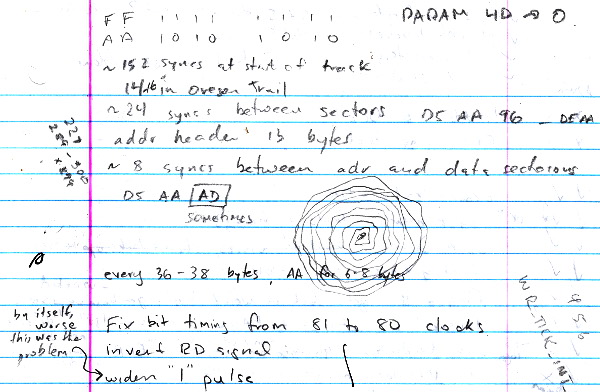 FF 1111 1111 PARAM 4D → 0
AA 1010 1010
~152 syncs at start of track
14/16 in Oregon Trail
~24 syncs between sectors D5 AA 96 _ DEAA
addr header 13 bytes
~8 syncs between adr and data
D5 AA AD
SOMETIMES
every 36-38 bytes, AA for 6-8 bytes
by itself,
worse
this was the
problem
Fix bit timing from 81 to 80 clocks
invent RD signal
widen "1" pulse